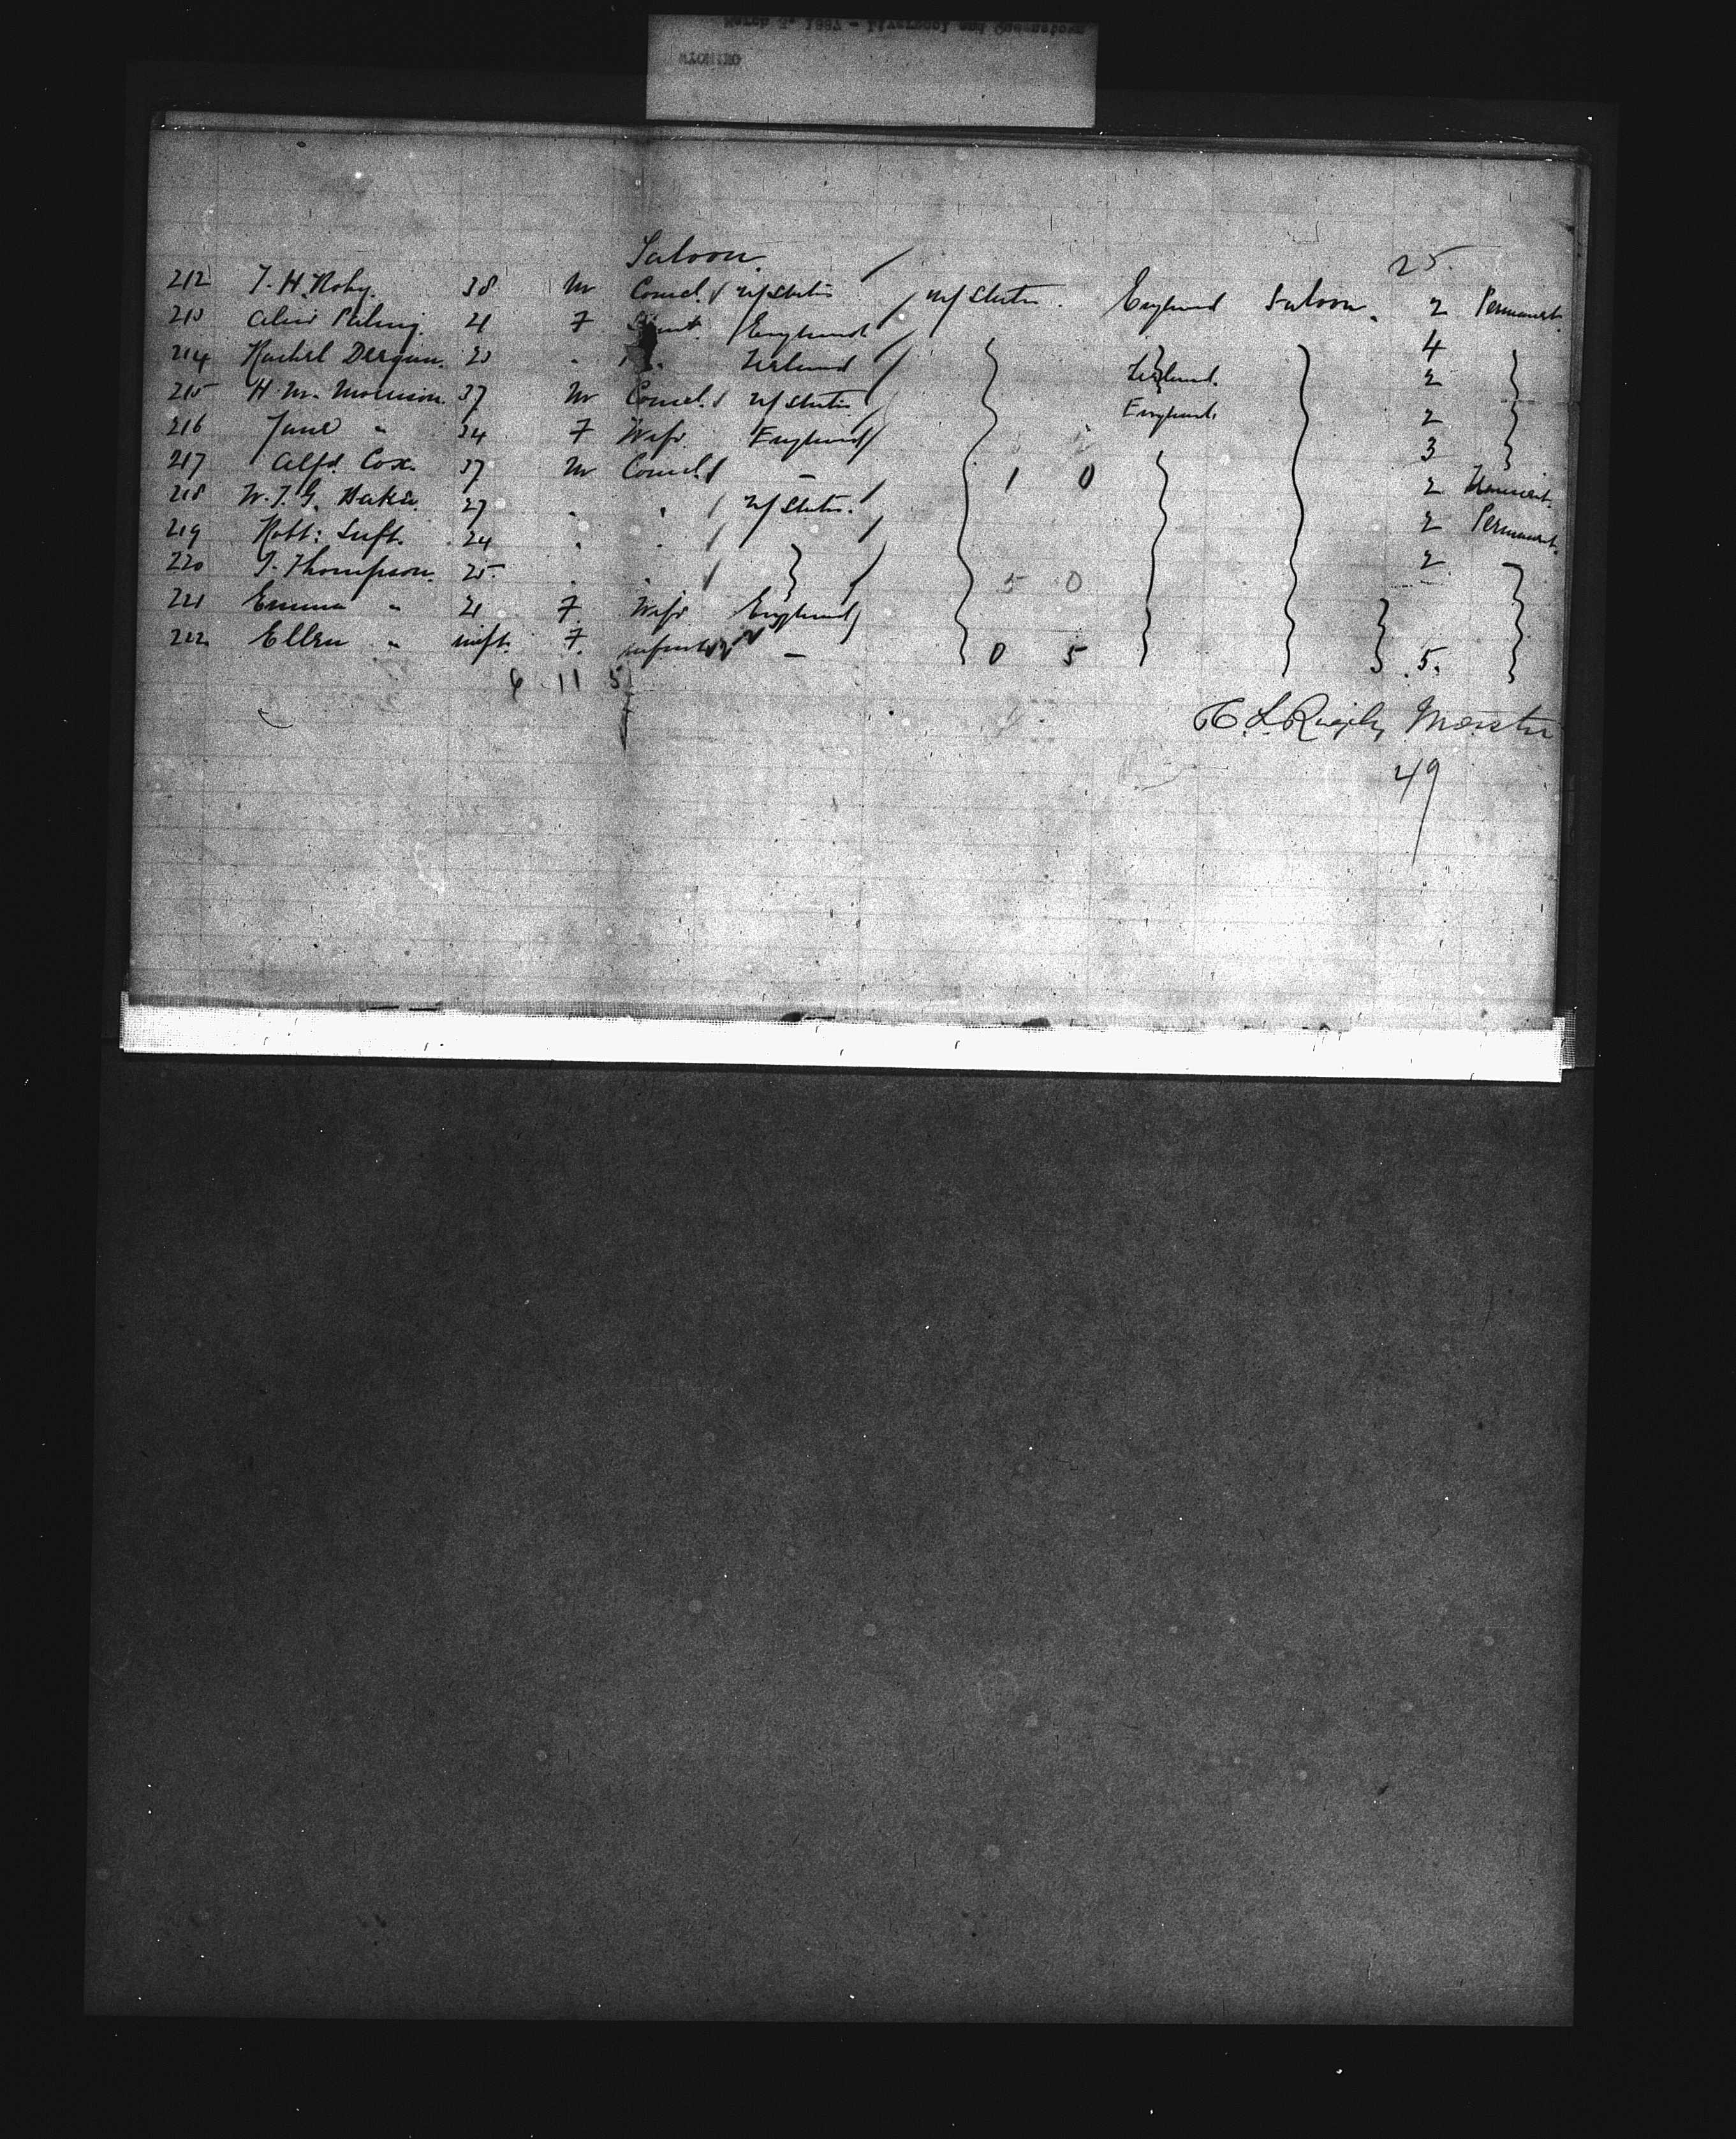 March 3, 1887 - Liverpool and Queenstown
WYOMING
Saloon. 25.
212 T. H. Roby. 38 M Comcl. U/States U/States. England Saloon. 2 Permanent.
213 Alice 21 F England 4
214 Rachel 20 " Ireland Ireland. 2
215 H. M. Morrison. 37 M Comcl. U/States England. 2
216 Jane " 24 F Wife England 3
217 Alfd. Cox. 37 M Comcl. - 1 0 2
218 W. T. G. Baker. 27 " " U/States. 2 Permanent.
219 Robt: 24 " " 2
220 T. Thompson. 25. " " 5 0
221 Emma " 21 F. Wife England
222 Ellen " inft. F. infant - 0 5 5.
6 11 5
Master
49